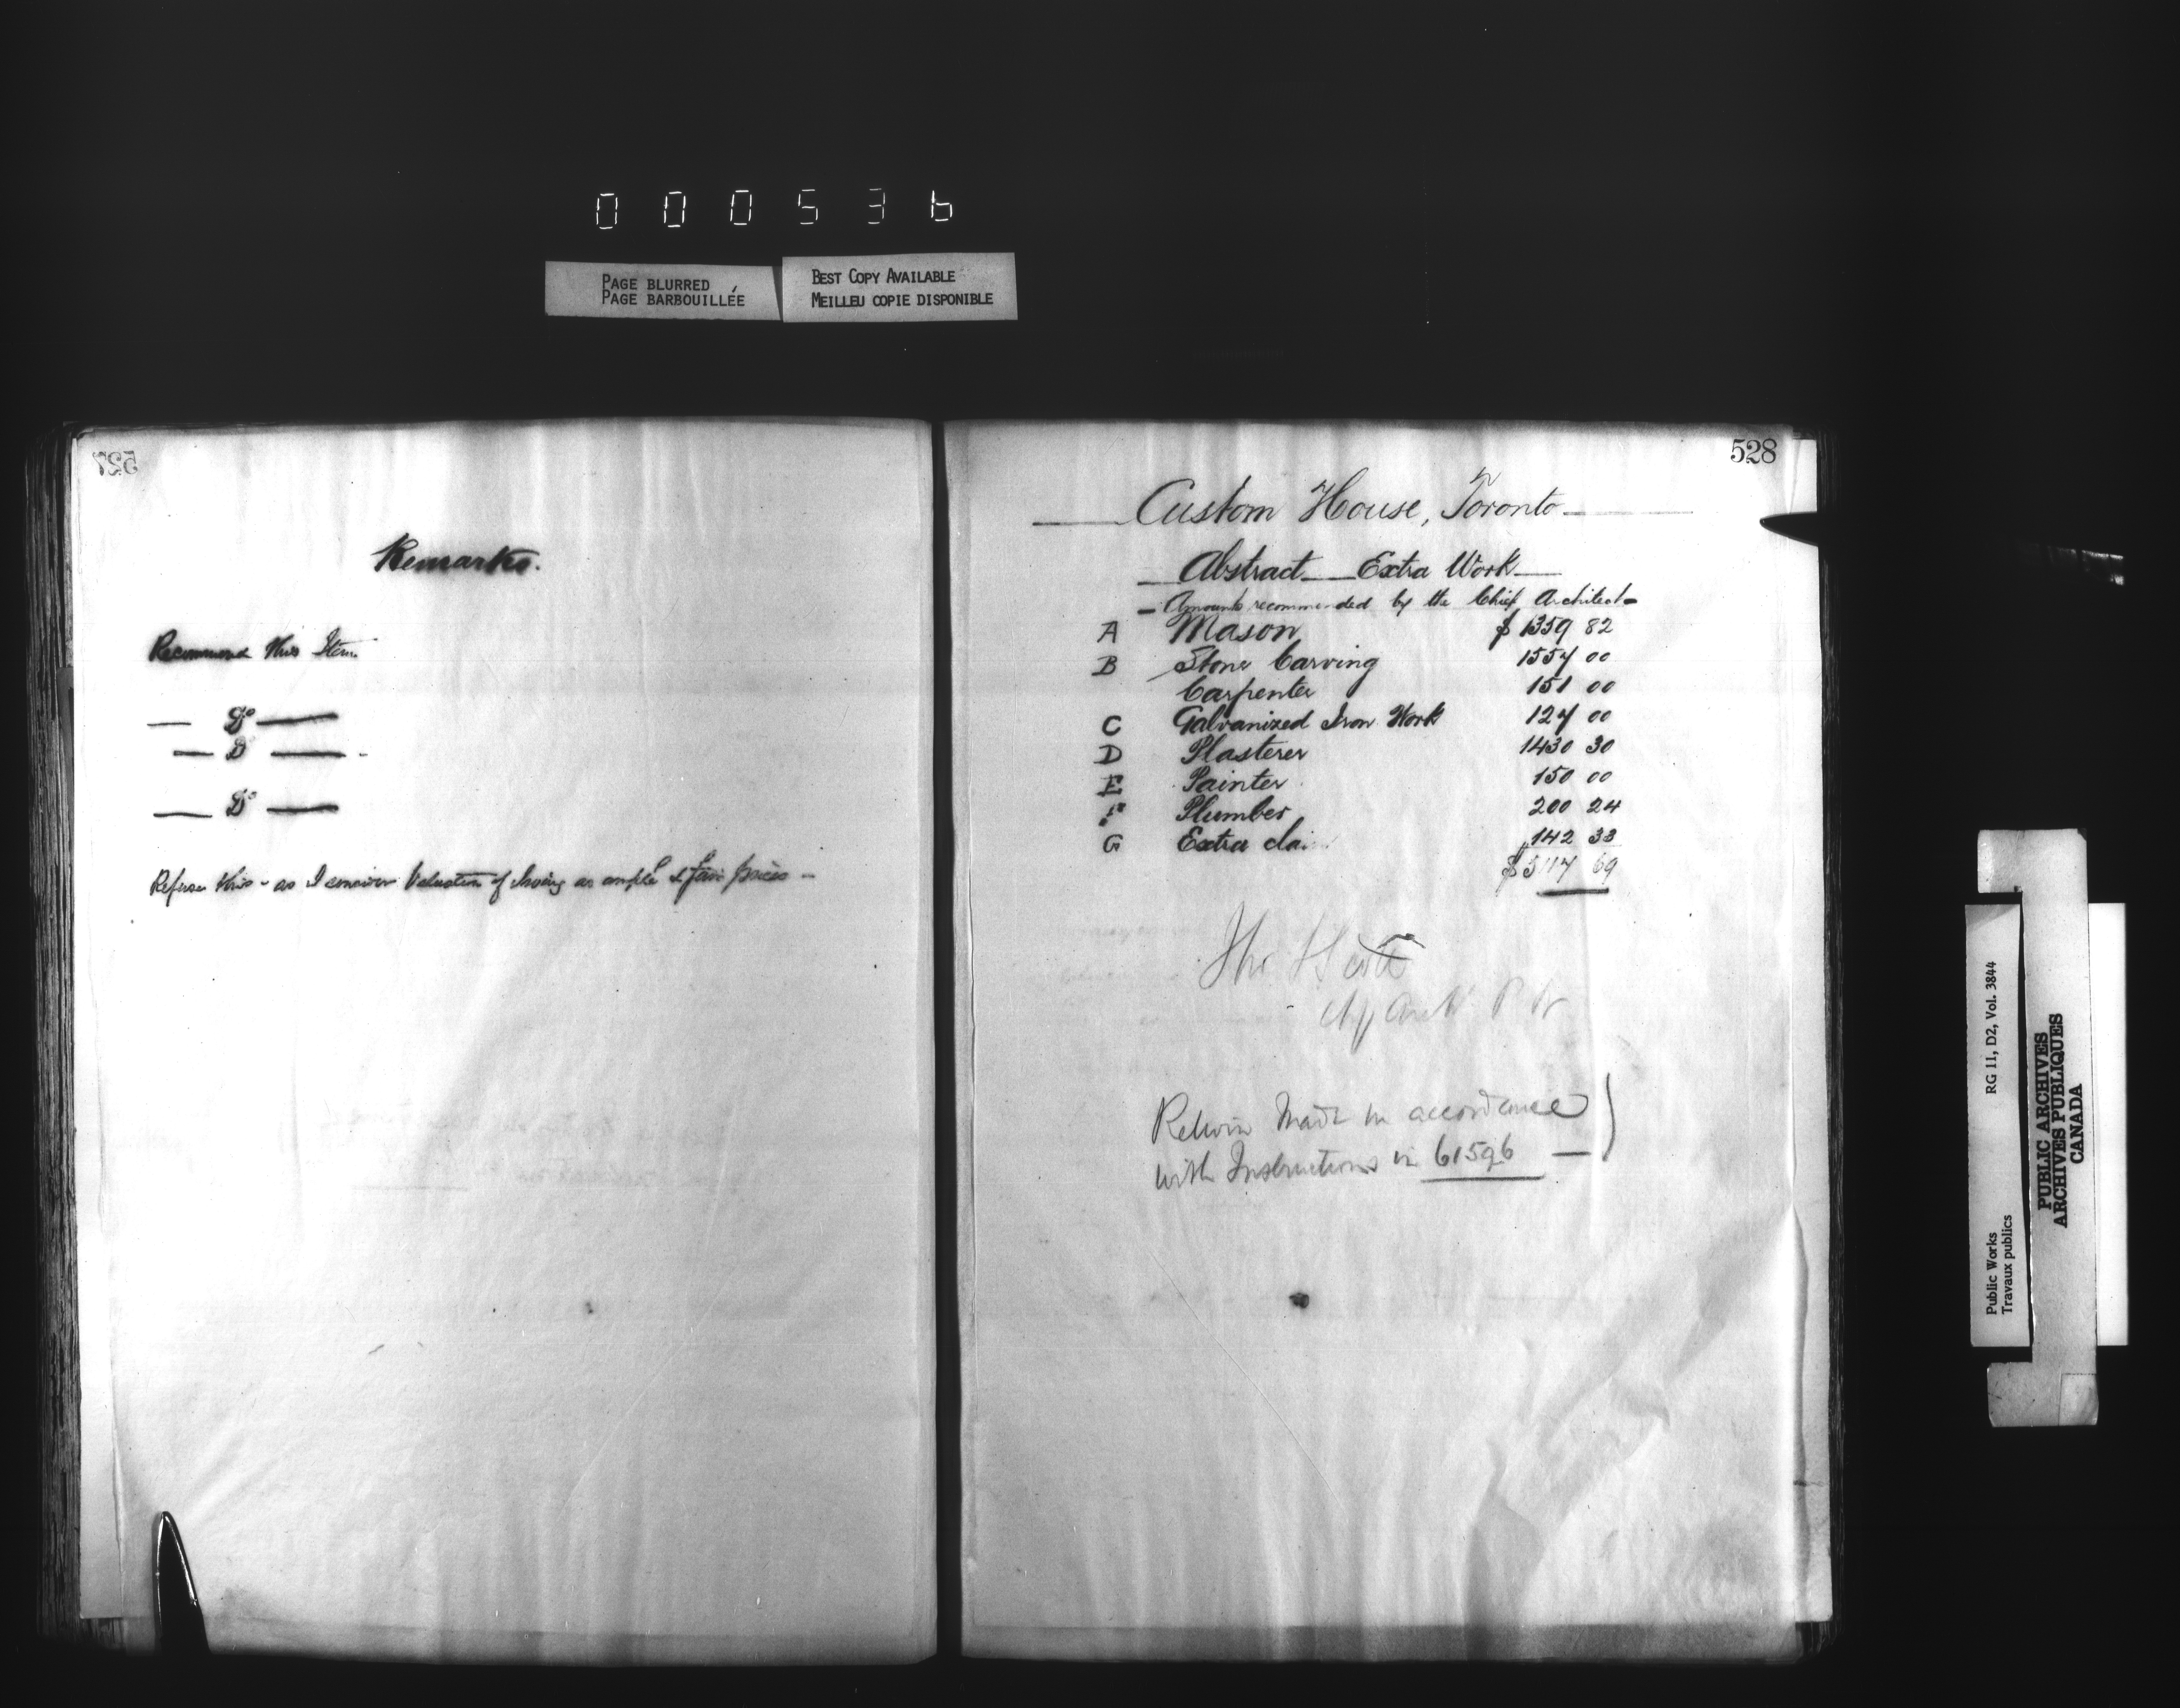 000536
PAGE BLURRED
PAGE BARBOUILLÉE
BEST COPY AVAILABLE
MEILLEU COPIE DISPONIBLE
527
Remarks.
Recommend this Item
— Do —
— Do —
— Do —
Refuse this - as I conceive Valuation of Irving as ample & fair prices -
528
Custom House, Toronto
Abstract Extra Work
- Amounts recommended by the Chief Architect -
A Mason $ 1359 82
B Stone Carving 1557 00
Carpenter 151 00
C Galvanized Iron Work 127 00
D Plasterer 1430 30
E Painter 150 00
F Plumber 200 24
G Extra clai 142 33
$ 5117 69
Thos Scott
Ch Archt P W
Return Made in accordance
with Instructions in 61596
Public Works
Travaux publics
RG 11, D2, Vol. 3844
PUBLIC ARCHIVES
ARCHIVES PUBLIQUES
CANADA